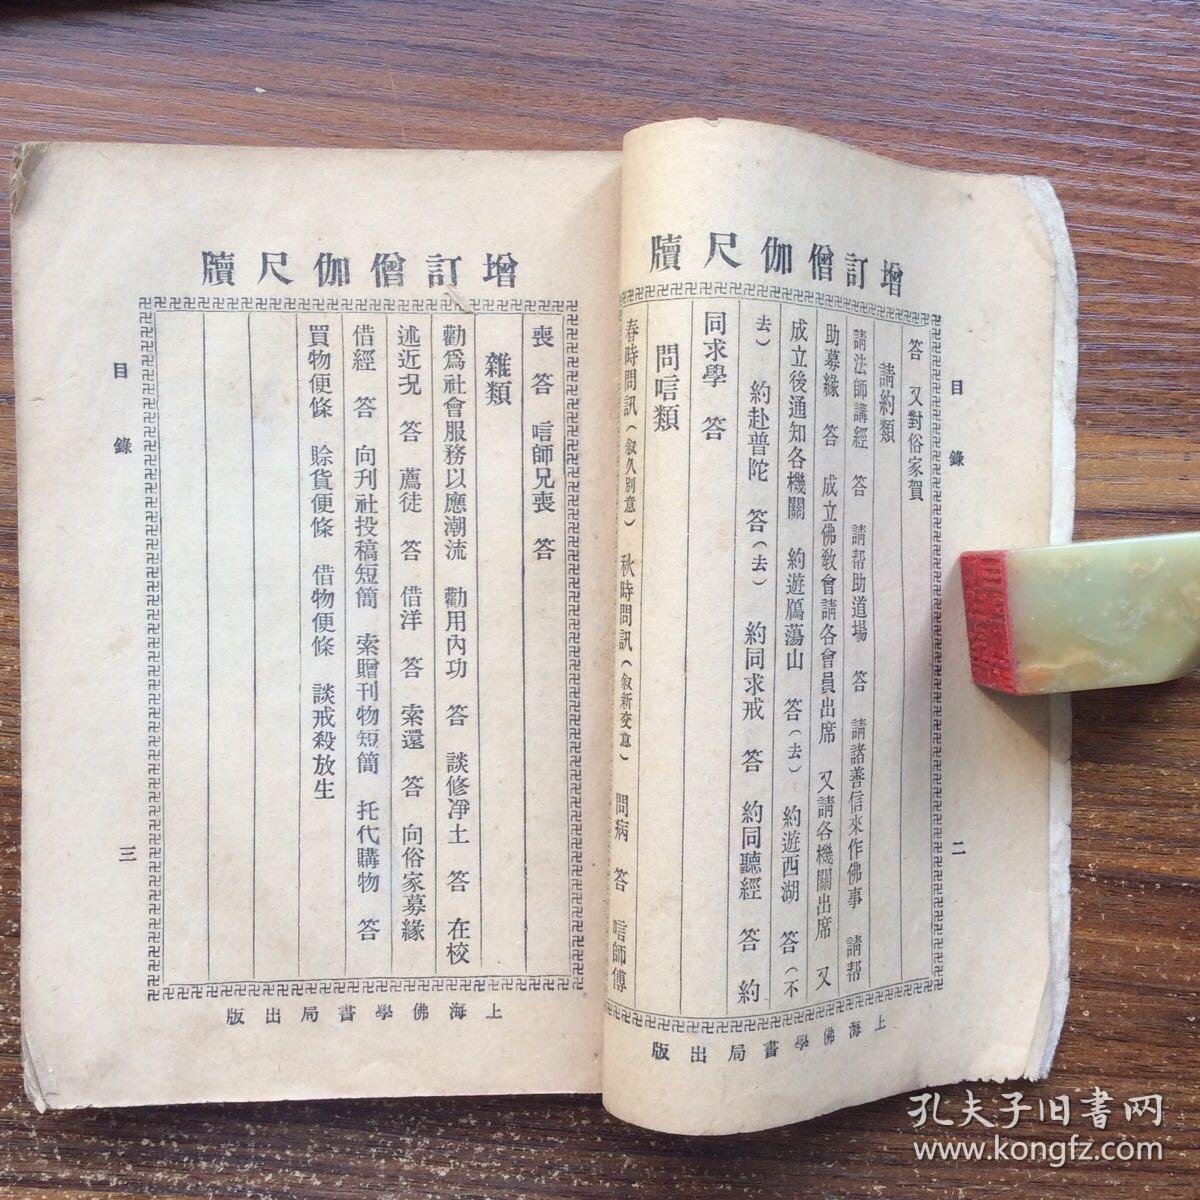 增訂僧伽尺牘
目錄
二
答　又對俗家賀
請約類
請法師講經　答　請帮助道場　答　請諸善信來作佛事　請帮
助募緣　答　成立佛敎會請各會員出席　又請各機關出席　又
成立後通知各機關　約遊鴈蕩山　答（去）　約遊西湖　答（不
去）　約赴普陀　答（去）　約同求戒　答　約同聽經　答　約
同求學　答
問唁類
春時問訊（叙久別意）　秋時問訊（叙新変意）　問病　答　唁師傅
上海佛學書局出版
增訂僧伽尺牘
喪　答　唁師兄喪　答
雜類
勸爲社會服務以應潮流　勸用內功　答　談修凈土　答　在校
述近況　答　薦徒　答　借洋　答　索還　答　向俗家募緣
借經　答　向刋社投稿短簡　索贈刊物短簡　托代購物　答
買物便條　賒貨便條　借物便條　談戒殺放生
目錄
三
上海佛學書局出版
孔夫子旧書网
www.kongfz.com